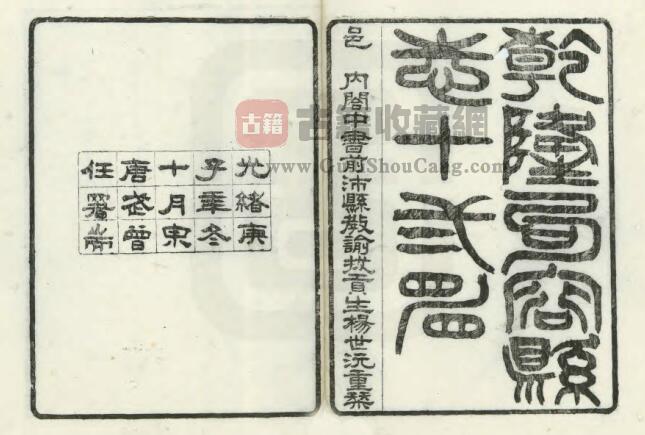 乾隆句容縣
志十弍
邑 內閣中書前沛縣教諭拔貢生楊世沅重槧
光緒庚
子秊冬
十月宋
唐曾
任署耑
古籍
古籍收藏網
www.GujiShouCang.com